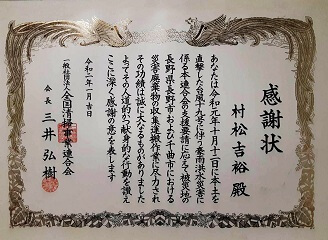 感謝状
村松吉裕 殿
あなたは令和元年十月十二日に本土を
直撃した台風十九号に伴う豪雨洪水災害に
係る本連合会の支援要請に応えて被災地の
長野県長野市および千曲市における
災害廃棄物の収集運搬作業に尽力され
その功績は誠に大なるものがありました
よってその人道的かつ献身的な行動を讃え
ここに深く感謝の意を表します
令和二年一月吉日
一般社団法人全国清掃事業連合会
会長 三井弘樹